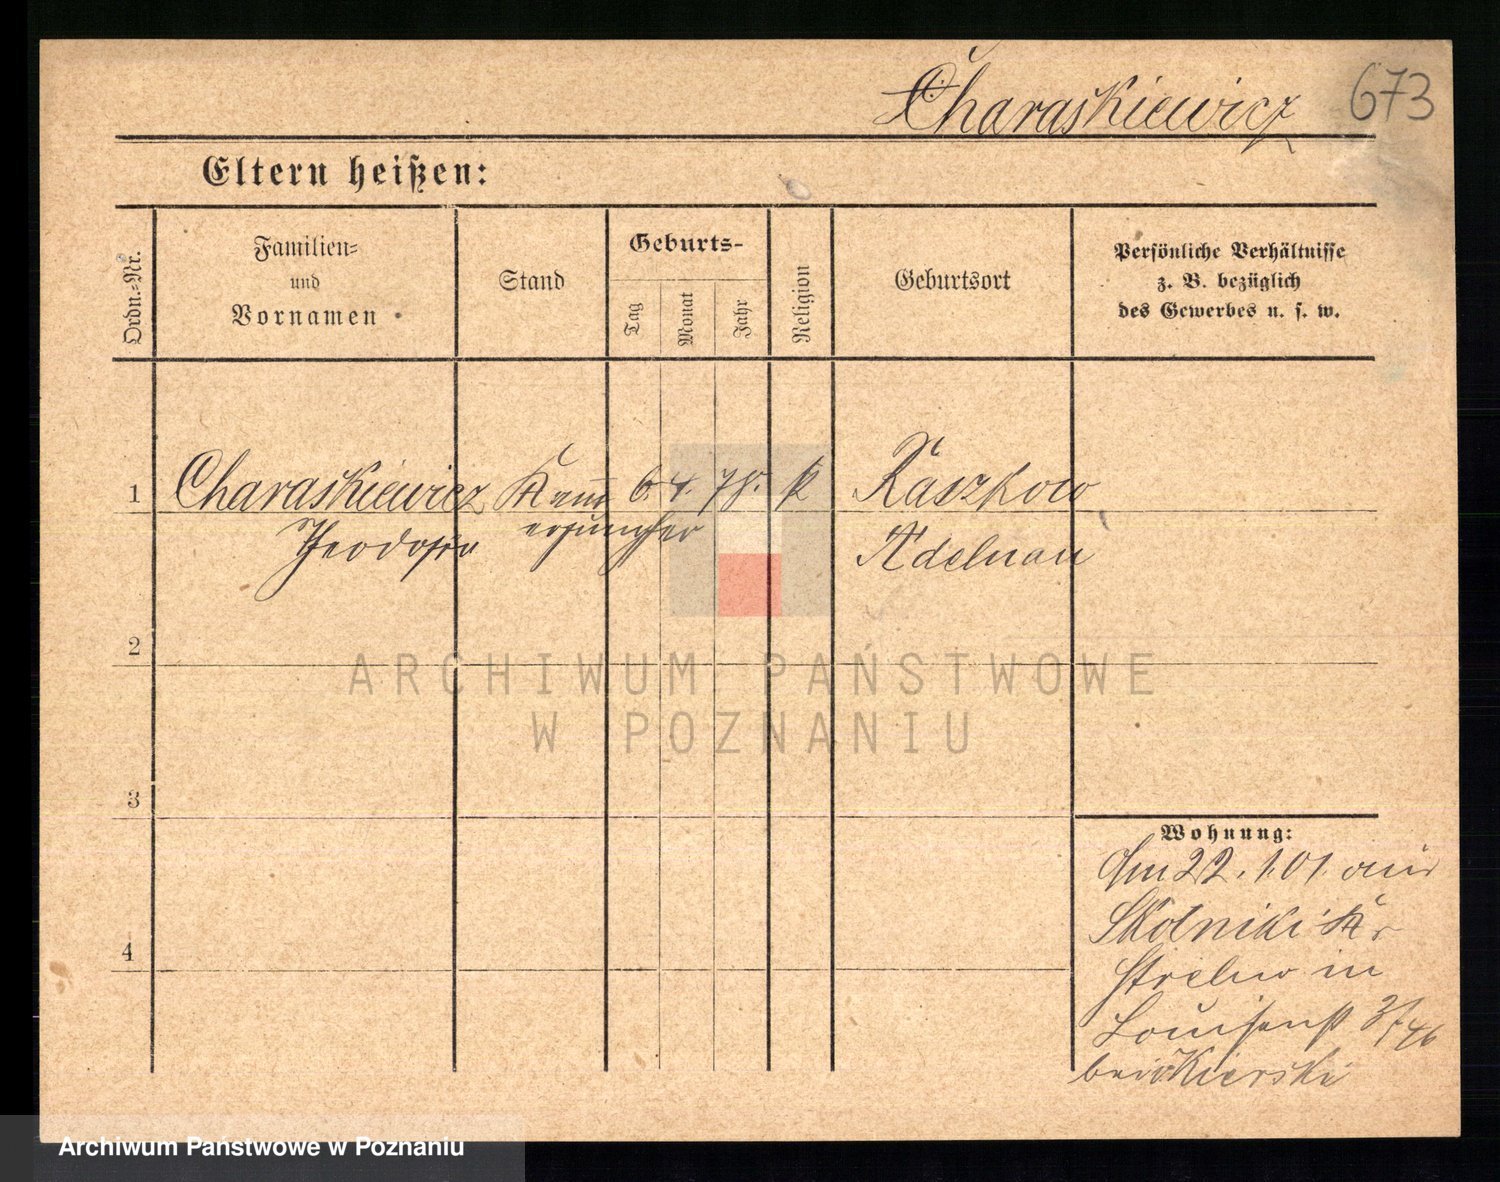 Charaskiewicz 673
Eltern heißen:
Ordn.-Nr.
Familien-
und
Vornamen
Stand
Geburts-
Tag
Monat
Jahr
Religion
Geburtsort
Persönliche Verhältnisse
z. B. bezüglich
des Gewerbes u. s. w.
1 Charaskiewicz Kamm 6. 4. 78. k Raszkow
Theodosia erjungfer Adelnau
2
ARCHIWUM PAŃSTWOWE
W POZNANIU
3
Wohnung:
Am 22. 1. 01. aus
Skotniki Kr
Strelno in
Louisenst
4
bei Kierski
Archiwum Państwowe w Poznaniu